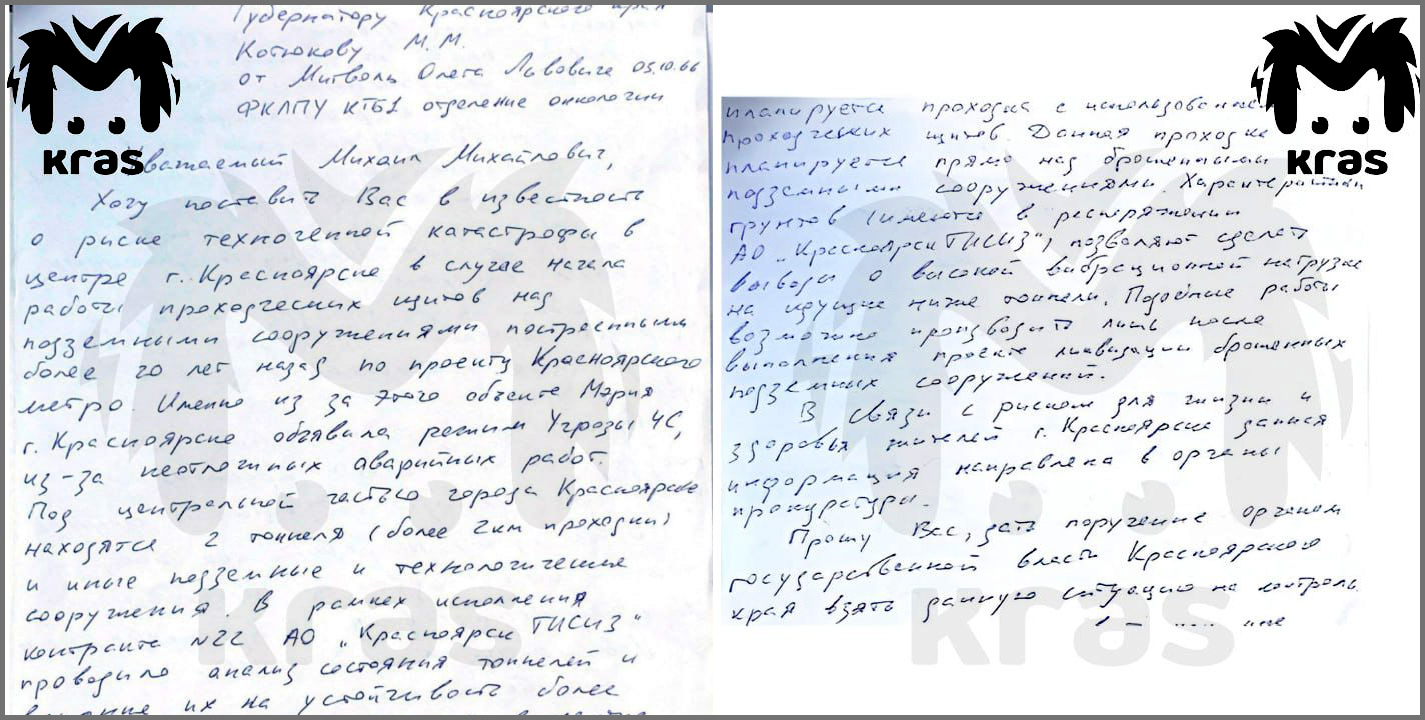 kras
Губернатору Красноярского края
Котюкову М.М.
от Митволь Олега Львовича 05.10.66
ФКЛПУ КТБ1 отделение онкологии
Уважаемый Михаил Михайлович,
Хочу поставить Вас в известность
о риске техногенной катастрофы в
центре г. Красноярска в случае начала
работы проходческих щитов над
подземными сооружениями построенными
более 20 лет назад по проекту Красноярского
метро. Именно из за этого объекта Мэрия
г. Красноярска объявила режим Угрозы ЧС,
из-за неотложных аварийных работ.
Под центральной частью города Красноярска
находятся 2 тоннеля (более 2км проходки)
и иные подземные и технологические
сооружения. В рамках исполнения
контракта №22 АО „Красноярск ТИСИЗ"
проводило анализ состояния тоннелей и
их на устойчивость более
kras
kras
планируется проходка с использованием
проходческих щитов. Данная проходка
планируется прямо над брошенными
подземными сооружениями. Характеристики
грунтов (имеются в распоряжении
АО „Красноярск ТИСИЗ"), позволяют сделать
выводы о высокой вибрационной нагрузке
на идущие ниже тоннели. Подобные работы
возможно производить лишь после
выполнения проекта ликвидации брошенных
подземных сооружений.
В связи с риском для жизни и
здоровья жителей г. Красноярска данная
информация направлена в органы
прокуратуры.
Прошу Вас, дать поручение органам
государственной власти Красноярского
края взять данную ситуацию на контроль.
kras